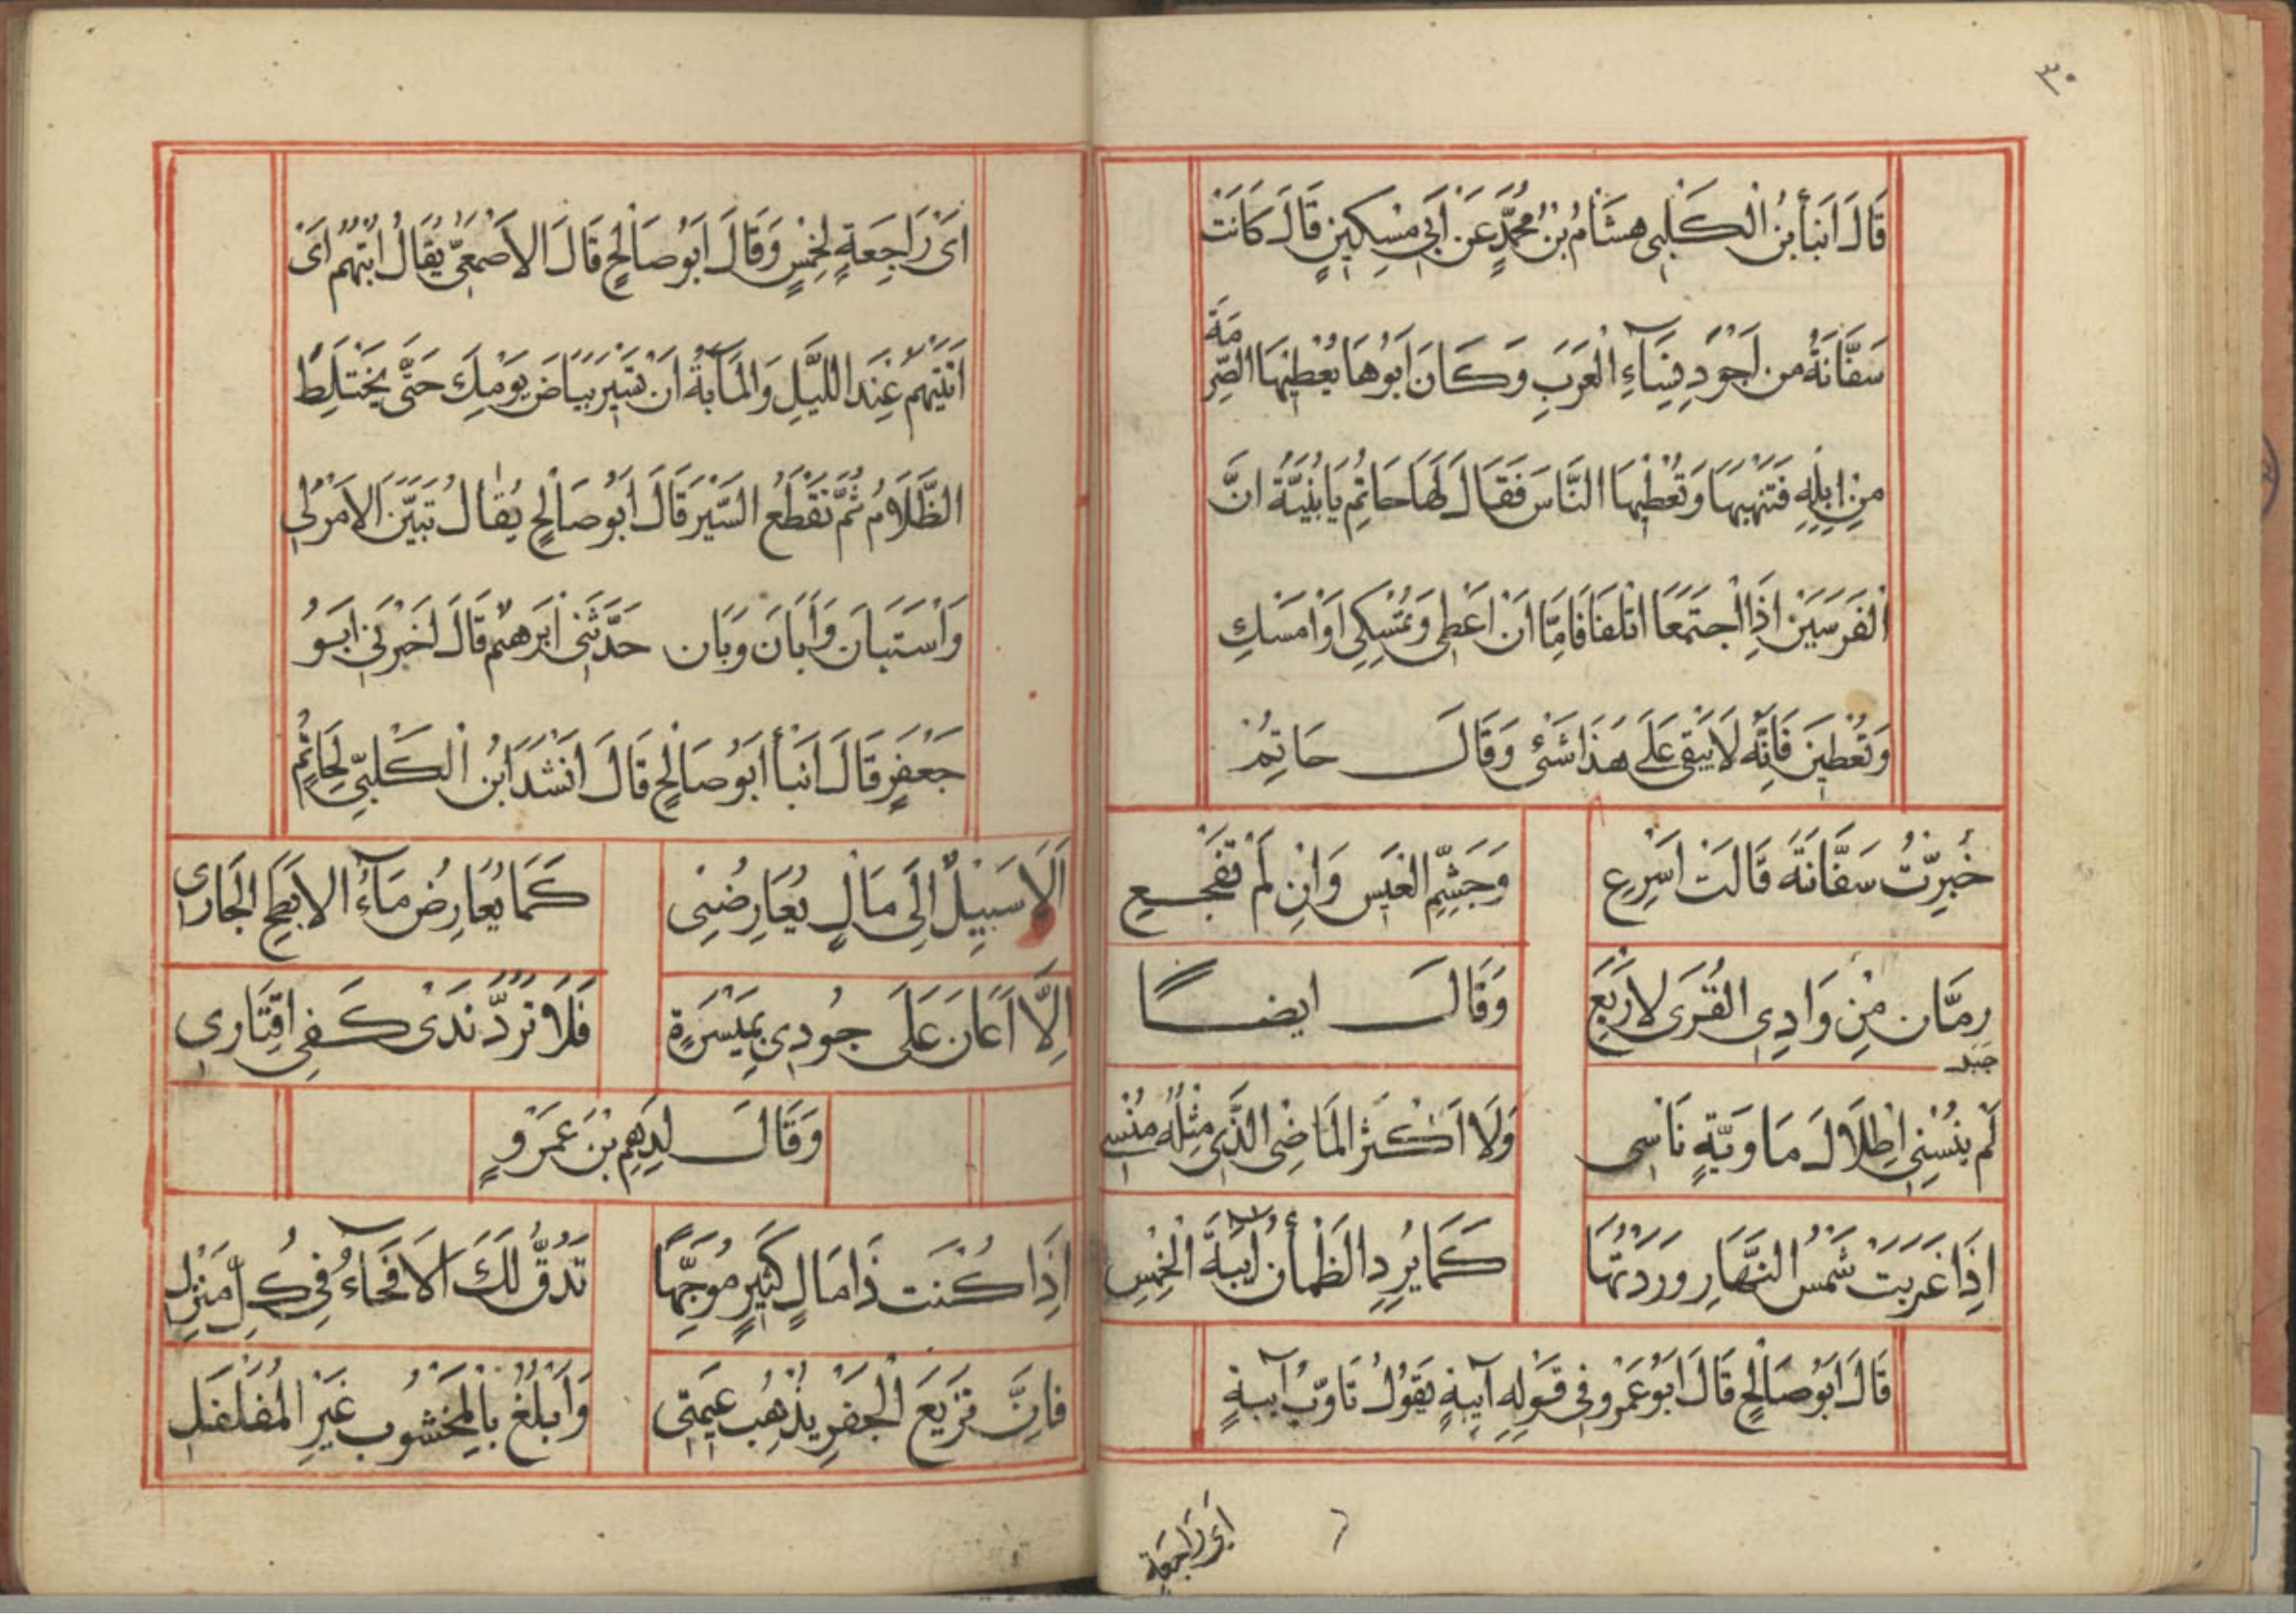 ٣٠
قَالَ اَنبأ بنُ الْكَلْبِى هشَامُ بنُ محُمَّدٍ عَن اَبِى مِسْكِينٍ قَالَ كَانَتْ
سَفَّانَةُ من اَجوَدِ نِسَاءِ الْعَرَبِ وَكَانَ اَبُوهَا يُعْطِيْهَا الصِّرمَةَ
مِنْ اِبِلِهِ فَتَنْهبهَا وَتُعْطِيْهَا النَّاسَ فَقَالَ لَهَا حَاتِمُ يَا بُنَيَّةُ انَّ
الْفَرَسَيْنِ اذَا اجتَمَعَا اتلَفَا فَامَّا اَنْ اُعْطِى وَتُمْسِكِى اَوْ اُمْسَكِ
وَتُعْطِيَن فَاِنَّه لَا يَبْقَى عَلَى هَذَا شَىْ وَقَالَ حَاتِمُ
خُبِرّتُ سَفَّانَةَ قَالَتْ اَسْرِعِ وَجَشِّمِ العَيس وَانِ لَمْ تَفجعِ
رِمَّان مِنْ وَادِى القُرَى لاربَعِ وَقَالَ ايضًا
جبد
لَم يُنسِنِى اطِلَالَ مَا وَيَّةٍ نَاسِى وَلَا اَكْثَر المَاضِى الَّذِى مثلُه مُنْسِى
اِذَا غَرَبَت شَمْسُ النَّهَارِ وَرَدتُهَا كَمَا يَرِدِ الظَمْأنُ آيبَةَ الْخِمْسِ
قَالَ اَبُو صَالحٍ قَالَ اَبُو عَمْرو فِى قَوْلِهِ آيبةٍ يَقُولُ تَاوّبُ آيبةٍ
اَى رَاجِعَة
اَىْ رَاجِعَةٍ لِخمْسٍ وَقَالَ اَبُو صَالحٍ قَالَ الاَصْمَعِىّ يُقَالُ ابْتهُمُ اَىْ
اتَيْتَهم عِنَد اللَّيلِ وَالمَآبةُ ان تَسَيْر بَيَاضَ يَوْمكَِ حَتَّى يَخْتَلِطَ
الظَّلَامُ ثُمَّ تَقْطَعُ السَّيْر قَالَ اَبُو صَالحٍ يُقَالُ تَبَيَّنَ الاَمْر لِى
وَاَسْتَبَان وَاَبَانَ وَبَان حَدَّثَنِى اَبرَهيمُ قَالَ اخبَرَنِى ابَو
جَعْفَرٍ قَالَ انَبأ اَبُو صَالحٍ قَالَ اَنشَدَ ابنُ الْكَلْبِىّ لِحَاتِمٍ
اَلَا سَبِيْلٌ اِلَى مَالٍ يُعَارِضُنِى كَمَا يُعَارِضُ مَآءُ الابَطَحِ الجَارى
اِلَّا اَعَانَ عَلَى جُودِى بمَيْسَرَةٍ فَلَا تَردُّ نَدَى كَفِى اقتَارِى
وَقَالَ لِدِهِمِ بْنَ عَمْرَوٍ
اِذَا كُنتَ ذَا مَالٍ كَثِيرٍ مُوَجِّهًا تَدُقّ لَكَ الاَفحَآءُ فِى كُلِّ مَنْزِلِ
فَانَِّ نَزيْعَ الْجَفْرِ يذْهبُ عيمَتِى وَاَبْلُغ بِالمخشُوبِ غَيْرِ المُفَلفَلِ